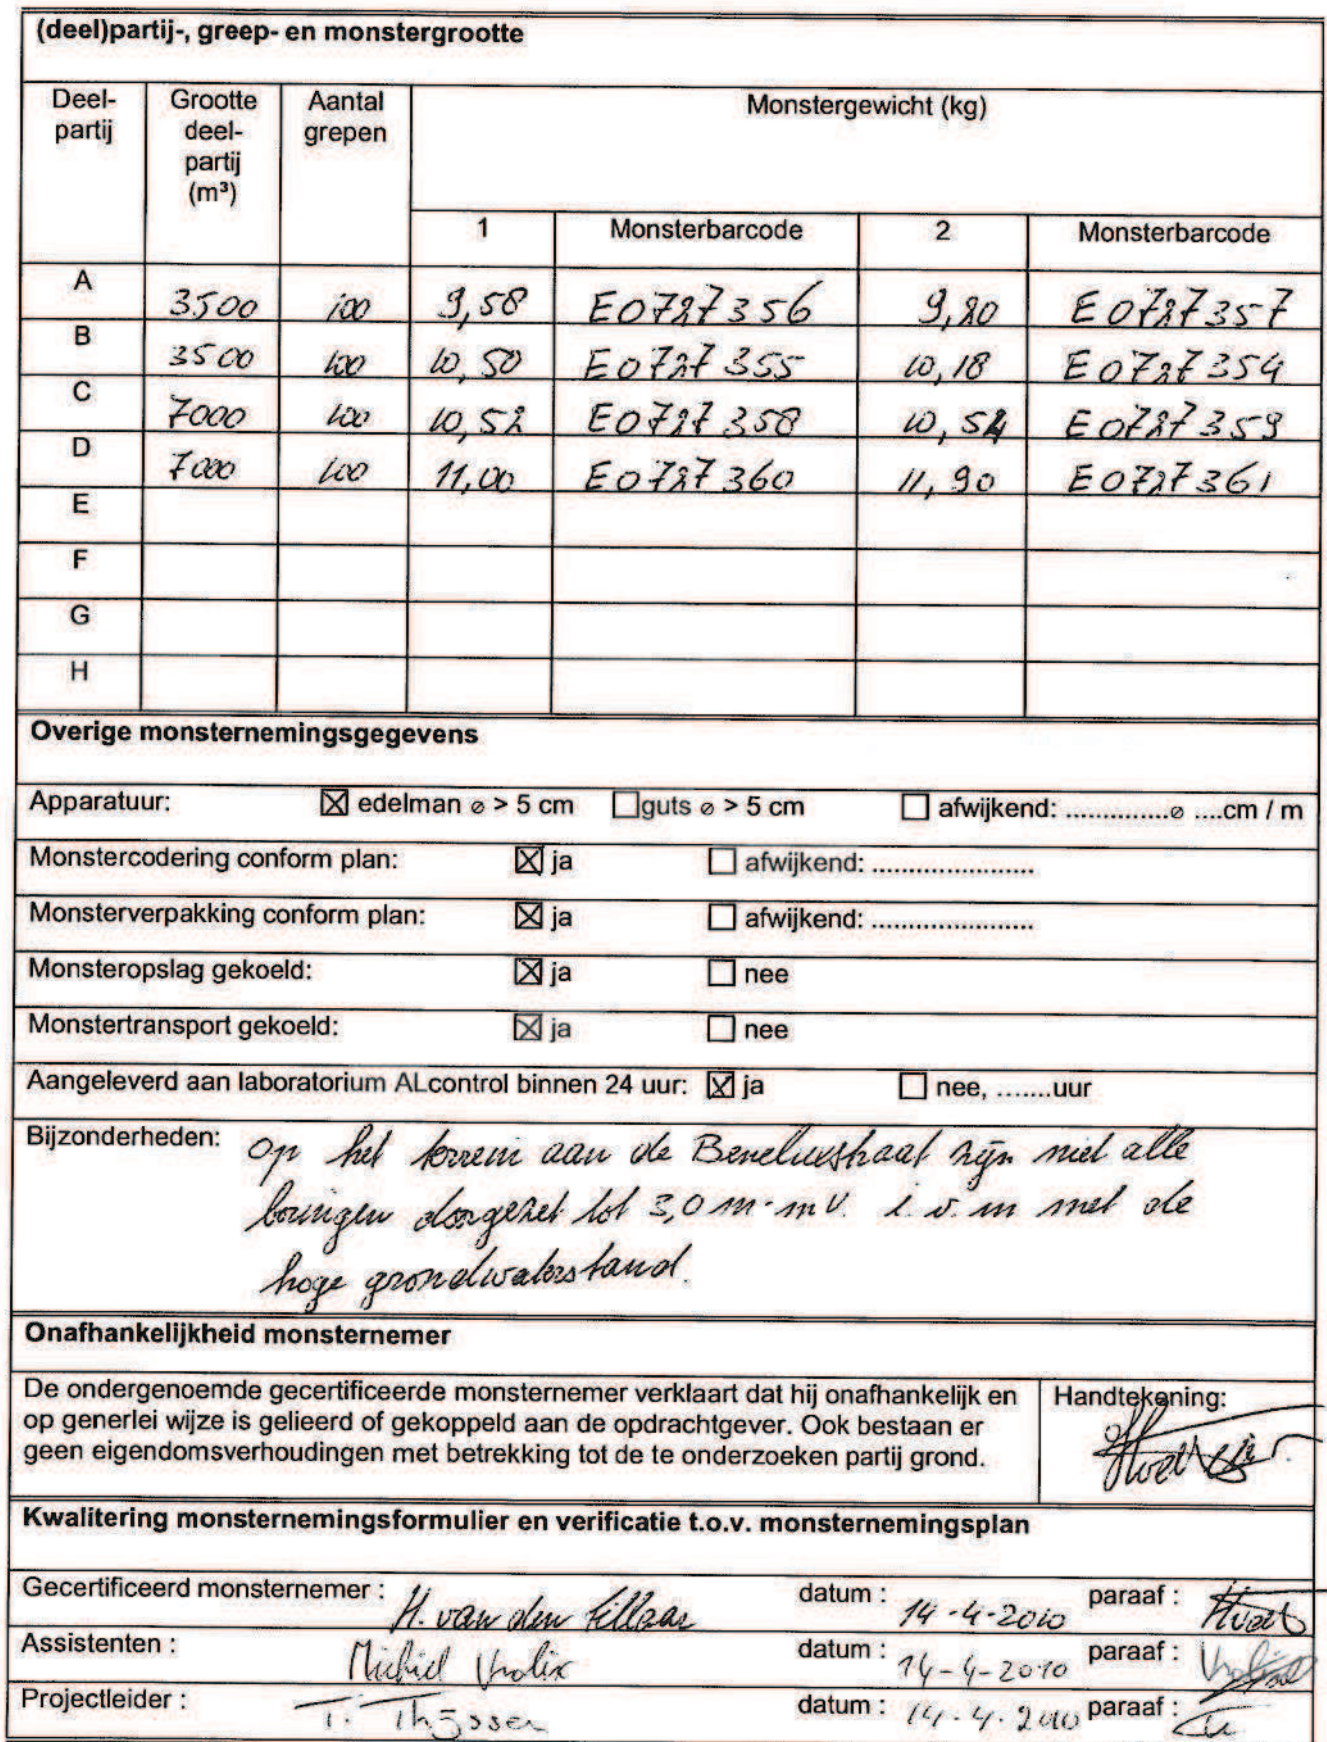 (deel)partij-, greep- en monstergrootte
Deel-partij Grootte deel-partij (m³) Aantal grepen Monstergewicht (kg)
1 Monsterbarcode 2 Monsterbarcode
A 3500 100 9,58 E0727356 9,20 E0727357
B 3500 100 10,50 E0727355 10,18 E0727354
C 7000 100 10,52 E0727358 10,54 E0727359
D 7000 100 11,00 E0727360 11,90 E0727361
E
F
G
H
Overige monsternemingsgegevens
Apparatuur: ☒ edelman ⌀ > 5 cm ☐ guts ⌀ > 5 cm ☐ afwijkend: ..............⌀ ....cm / m
Monstercodering conform plan: ☒ ja ☐ afwijkend: ......................
Monsterverpakking conform plan: ☒ ja ☐ afwijkend: ......................
Monsteropslag gekoeld: ☒ ja ☐ nee
Monstertransport gekoeld: ☒ ja ☐ nee
Aangeleverd aan laboratorium ALcontrol binnen 24 uur: ☒ ja ☐ nee, .......uur
Bijzonderheden: Op het terrein aan de Beneluxstraat zijn niet alle
boringen doorgezet tot 3,0 m-mv. i.v.m met de
hoge grondwaterstand.
Onafhankelijkheid monsternemer
De ondergenoemde gecertificeerde monsternemer verklaart dat hij onafhankelijk en
op generlei wijze is gelieerd of gekoppeld aan de opdrachtgever. Ook bestaan er
geen eigendomsverhoudingen met betrekking tot de te onderzoeken partij grond.
Handtekening:
Kwalitering monsternemingsformulier en verificatie t.o.v. monsternemingsplan
Gecertificeerd monsternemer : H. van den Tillaar datum : 14-4-2010 paraaf :
Assistenten : Michiel Vrolix datum : 14-4-2010 paraaf :
Projectleider : T. Thijssen datum : 14-4-2010 paraaf :